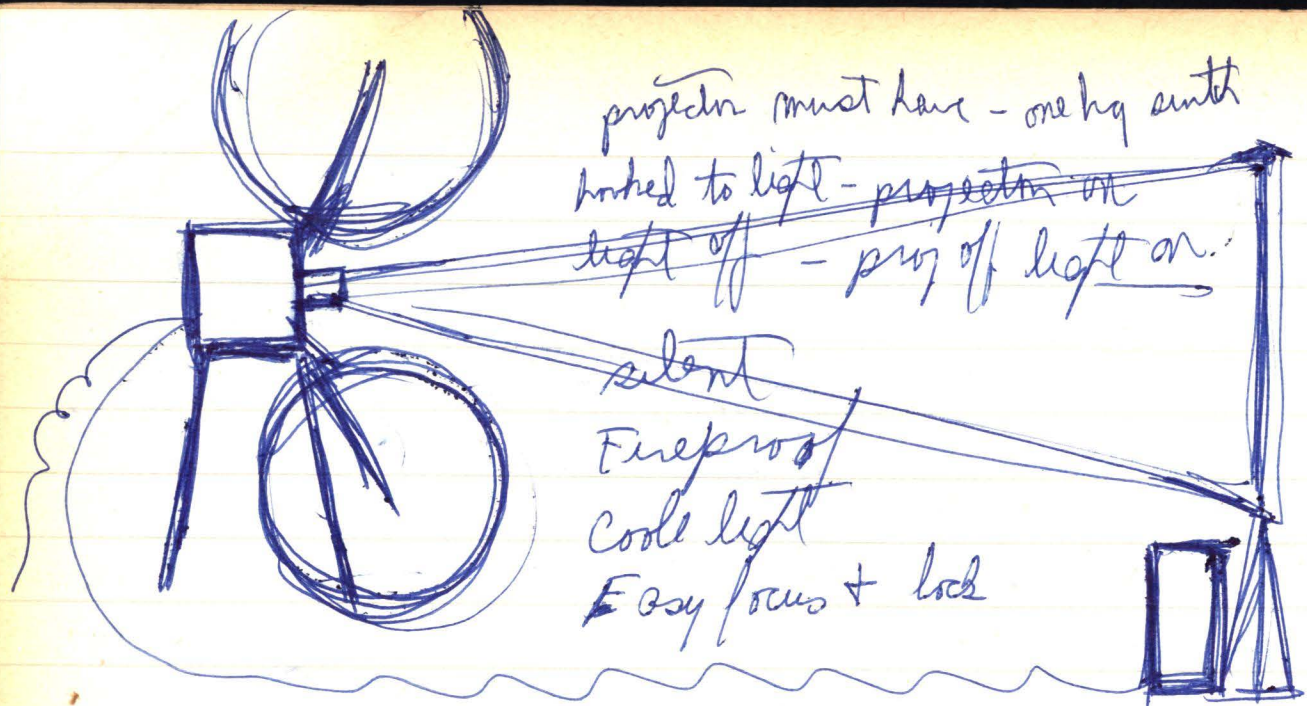 projector must have - one
hooked to light - projector on
light off - proj off light on.
silent
Fireproof
Coole light
Easy focus + lock